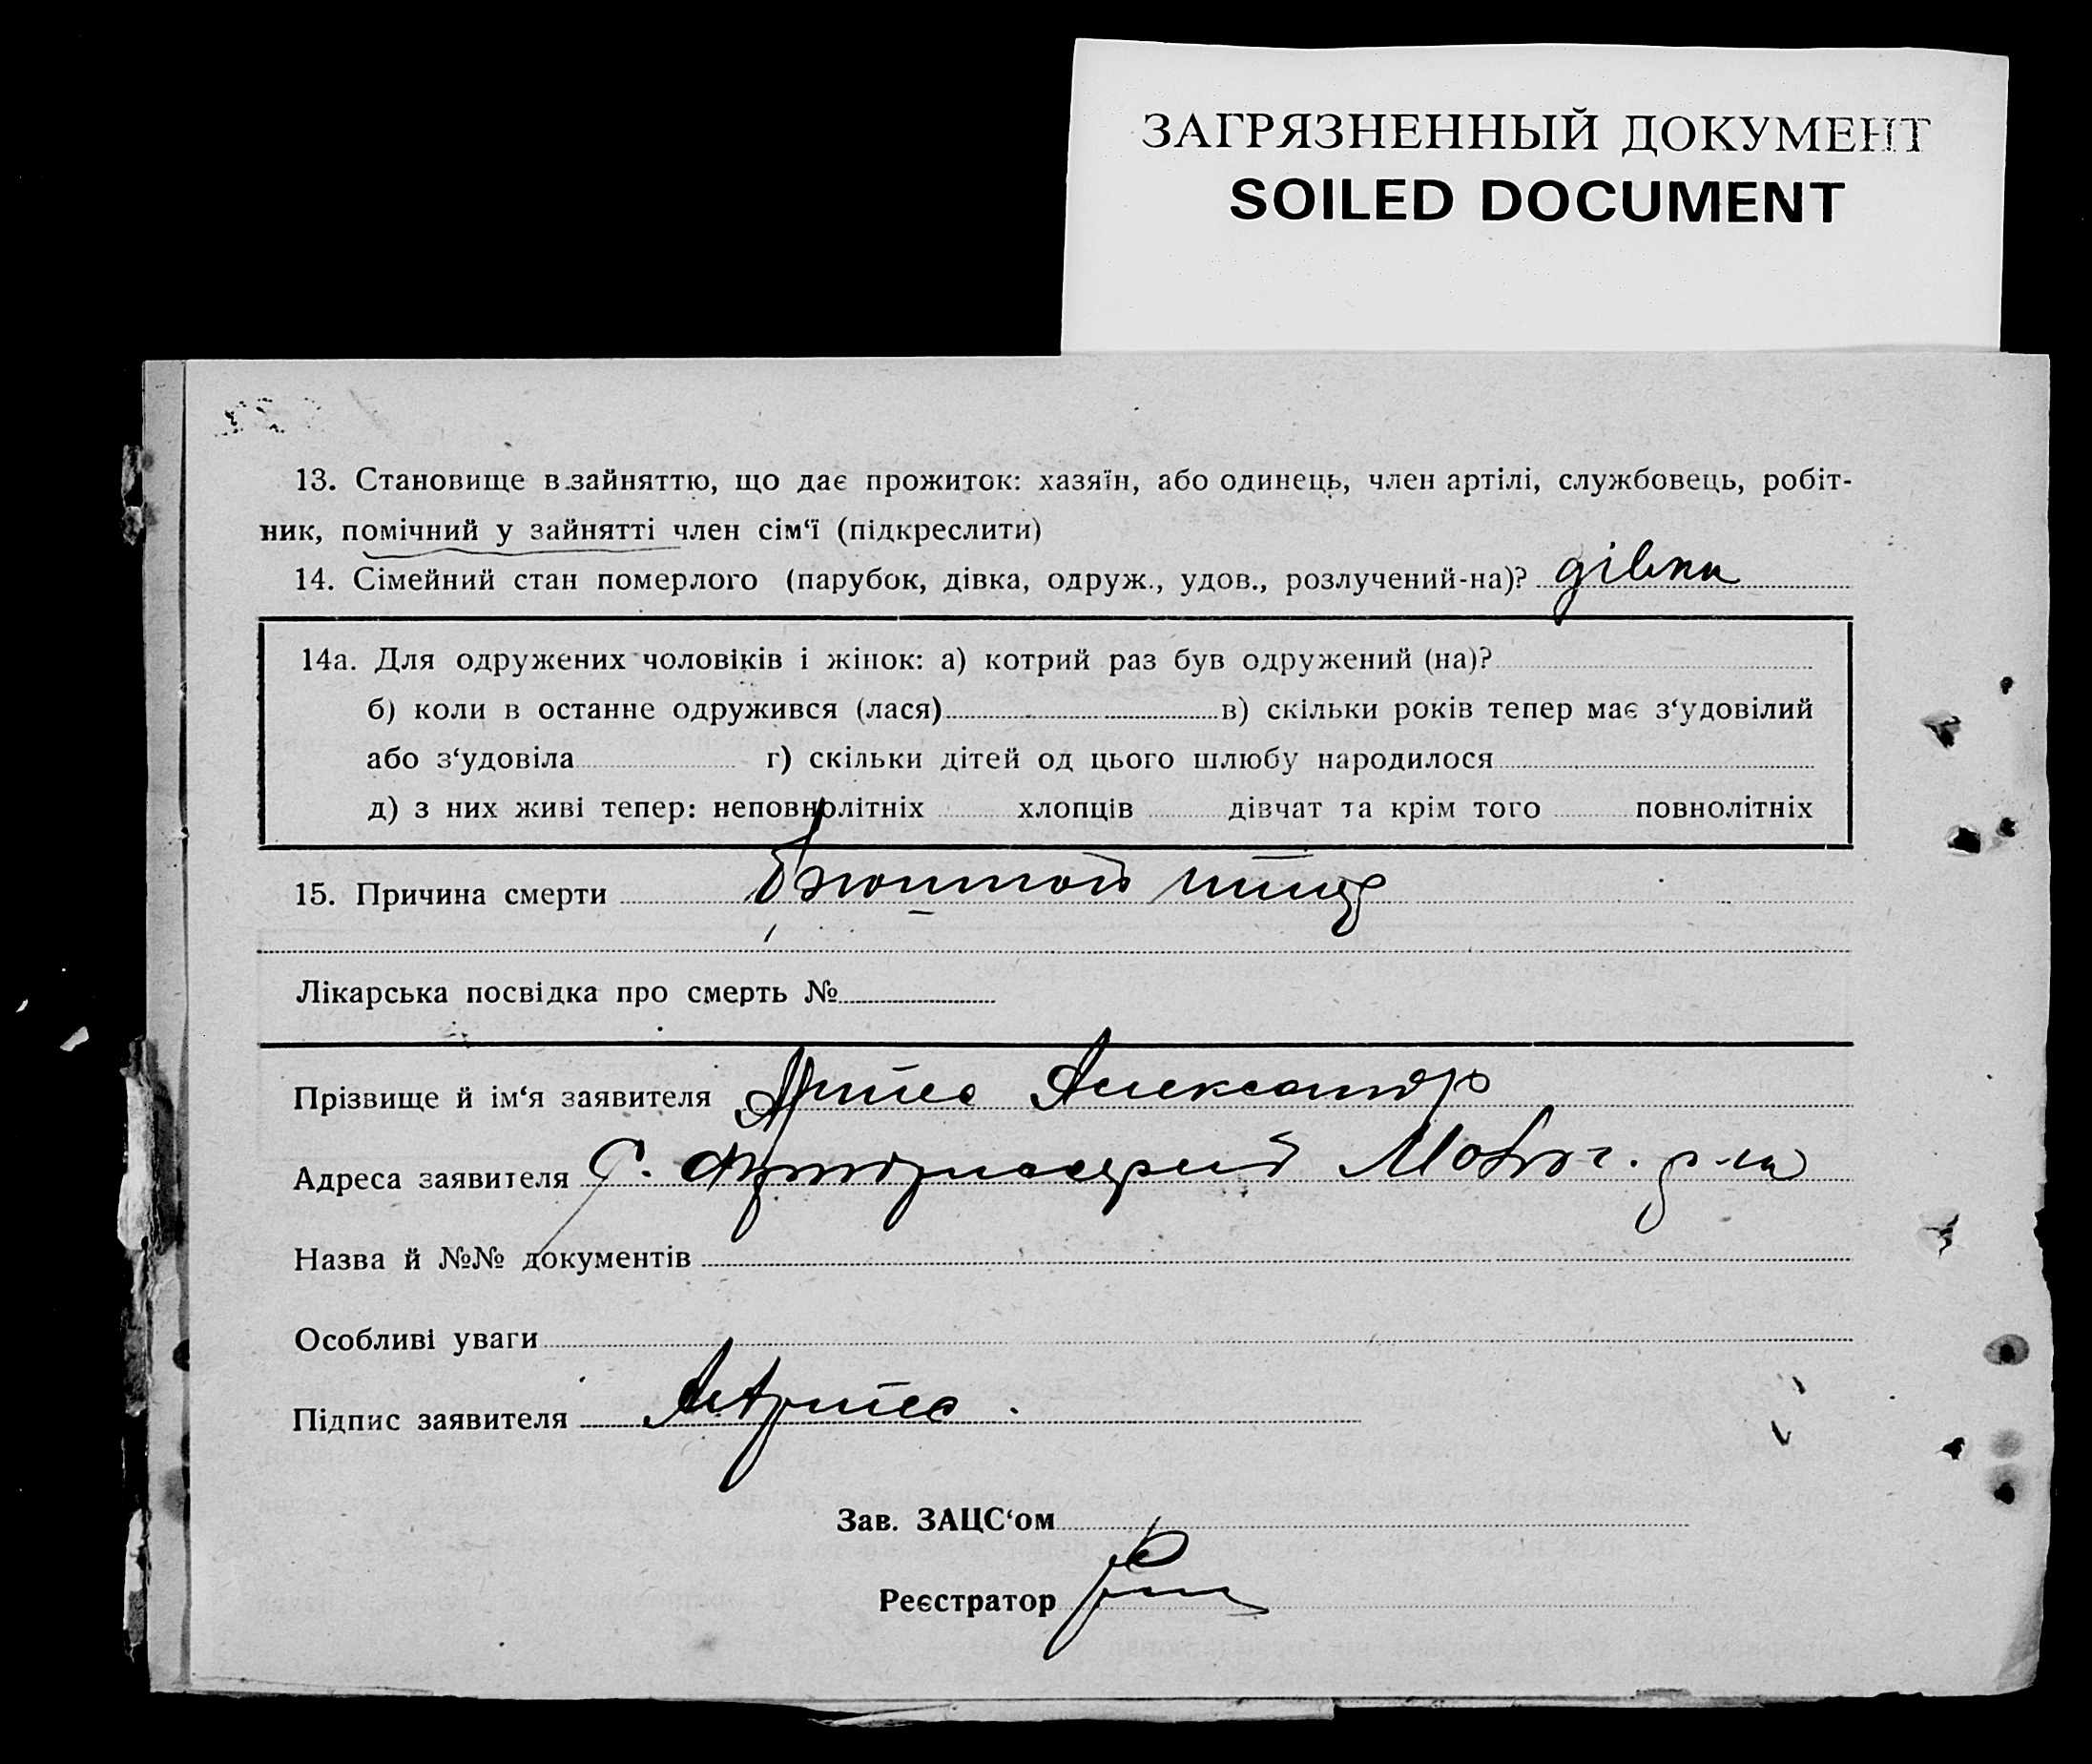 ЗАГРЯЗНЕННЫЙ ДОКУМЕНТ
SOILED DOCUMENT
13. Становище в зайняттю, що дає прожиток: хазяїн, або одинець, член артілі, службовець, робіт-
ник, помічний у зайнятті член сім‘ї (підкреслити)
14. Сімейний стан померлого (парубок, дівка, одруж., удов., розлучений-на)? дівка
14а. Для одружених чоловіків і жінок: а) котрий раз був одружений (на)?
б) коли в останнє одружився (лася) в) скільки років тепер має з‘удовілий
або з‘удовіла г) скільки дітей од цього шлюбу народилося
д) з них живі тепер: неповнолітніх хлопців дівчат та крім того повнолітніх
15. Причина смерти
Лікарська посвідка про смерть №
Прізвище й ім‘я заявителя Александр
Адреса заявителя С. р-на
Назва й №№ документів
Особливі уваги
Підпис заявителя
Зав. ЗАЦС‘ом
Реєстратор